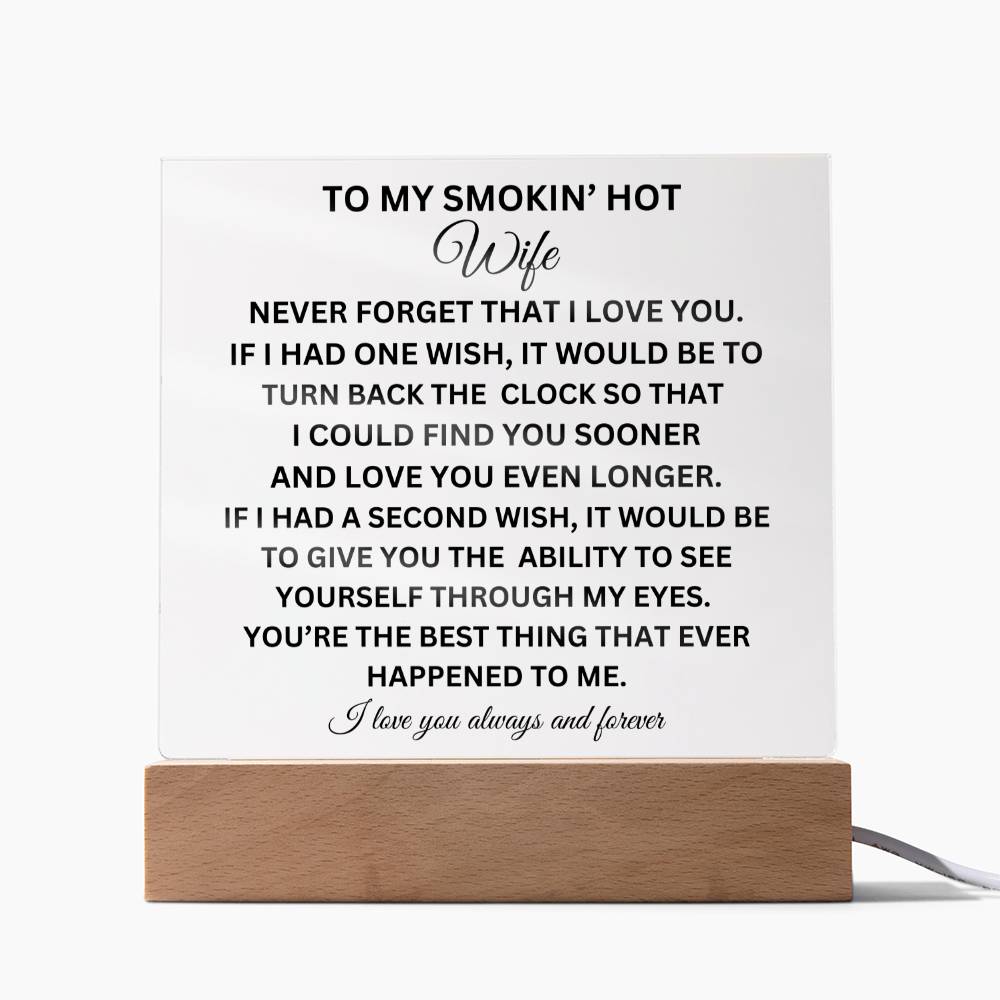 TO MY SMOKIN’ HOT
Wife
NEVER FORGET THAT I LOVE YOU.
IF I HAD ONE WISH, IT WOULD BE TO
TURN BACK THE CLOCK SO THAT
I COULD FIND YOU SOONER
AND LOVE YOU EVEN LONGER.
IF I HAD A SECOND WISH, IT WOULD BE
TO GIVE YOU THE ABILITY TO SEE
YOURSELF THROUGH MY EYES.
YOU’RE THE BEST THING THAT EVER
HAPPENED TO ME.
I love you always and forever